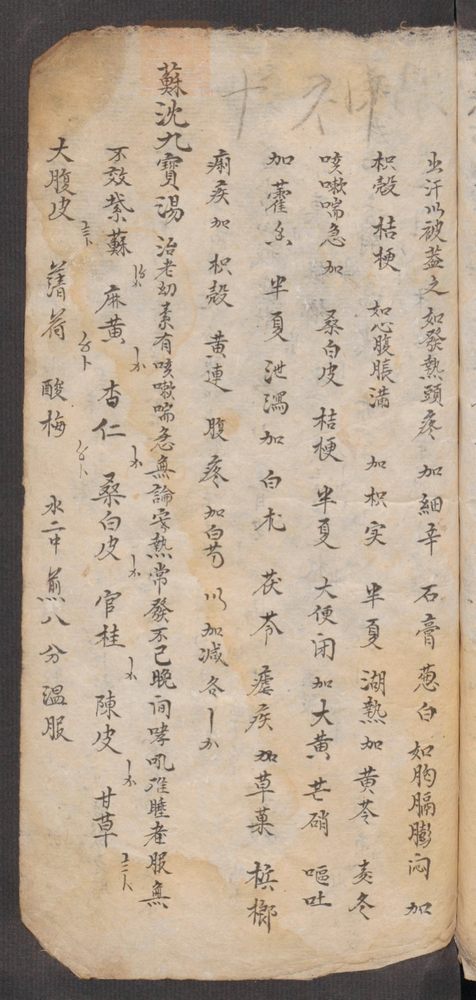 十 神
出汗以被蓋之 如發熱頭疼 加細辛 石膏 葱白 如胸膈膨悶 加
枳殼 桔梗 如心腹脹滿 加枳实 半夏 湖熱加黄芩 麦冬
咳嗽喘急加 桑白皮 桔梗 半夏 大便闭加大黄 芒硝 嘔吐
加藿香 半夏 泄瀉加白朮 茯苓 瘧疾加草菓 槟榔
痢疾加枳殼 黄連 腹疼加白芍 以加減各
蘇沈九寳湯 治老幼素有咳嗽喘急無論寒熱常發不已晚间哮吼难睡者服無
不效紫蘇 麻黄 杏仁 桑白皮 官桂 陳皮 甘草
大腹皮 薄荷 酸梅 水二中煎八分温服